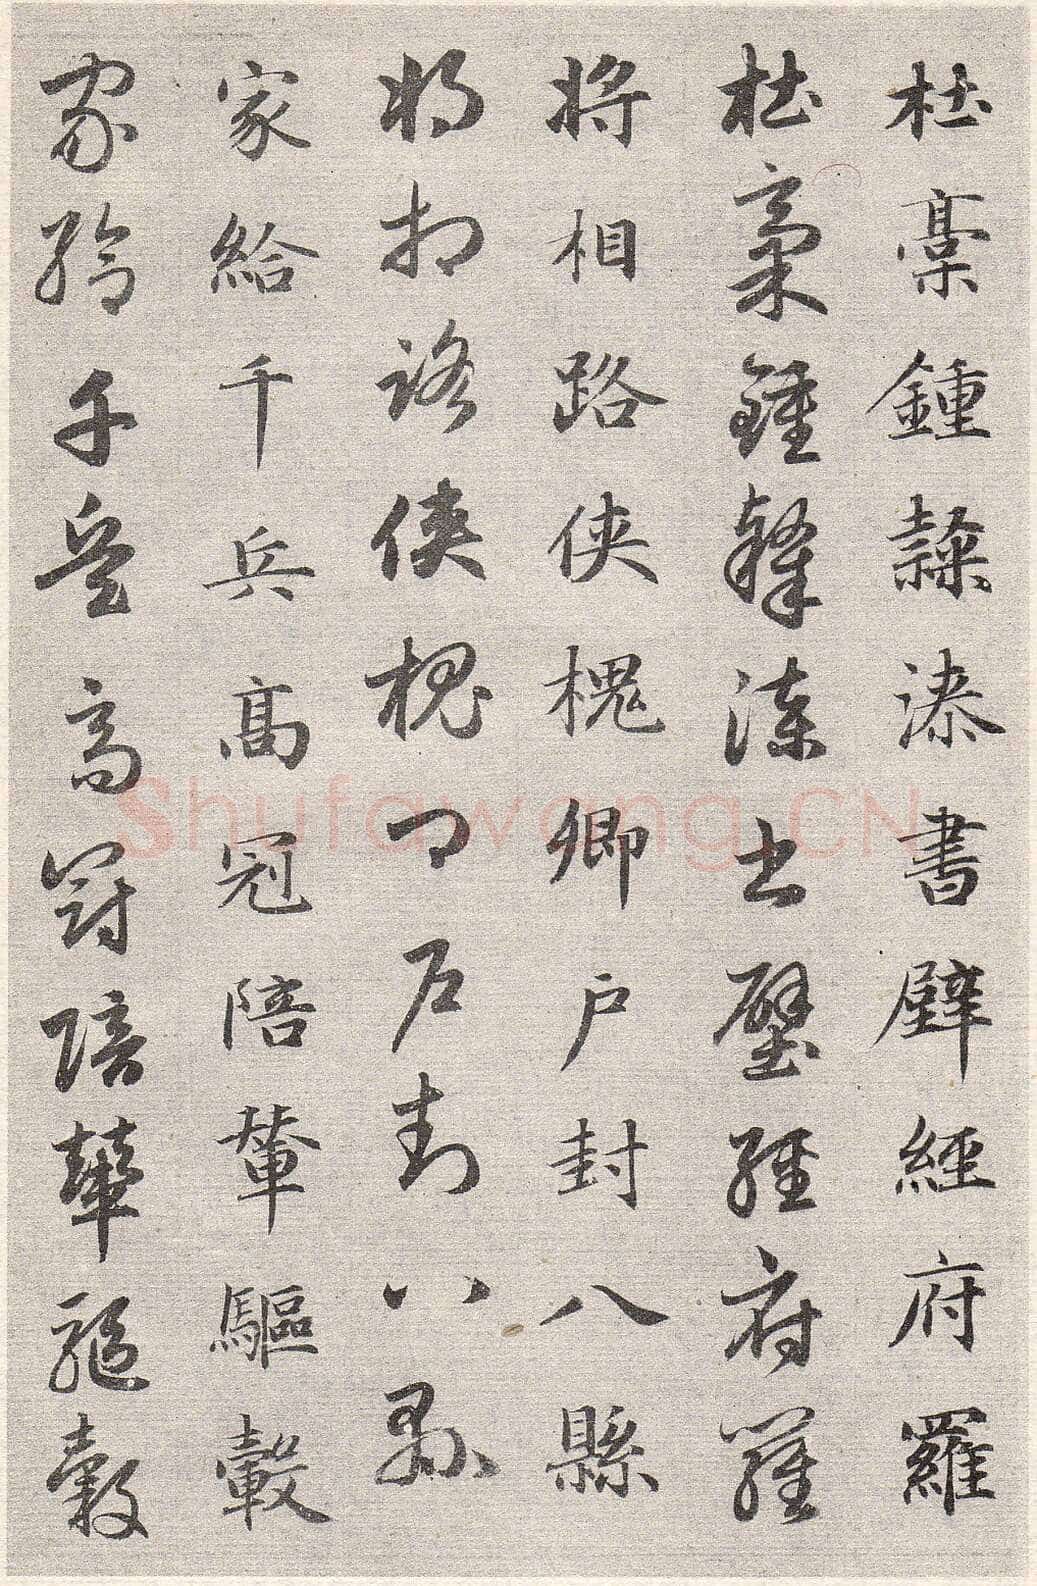 杜稾鍾隸漆書壁經府羅
杜稾鍾隸漆書壁經府羅
將相路俠槐卿戶封八縣
將相路俠槐卿戶封八縣
家給千兵高冠陪輦驅轂
家給千兵高冠陪輦驅轂
Shufawang.CN